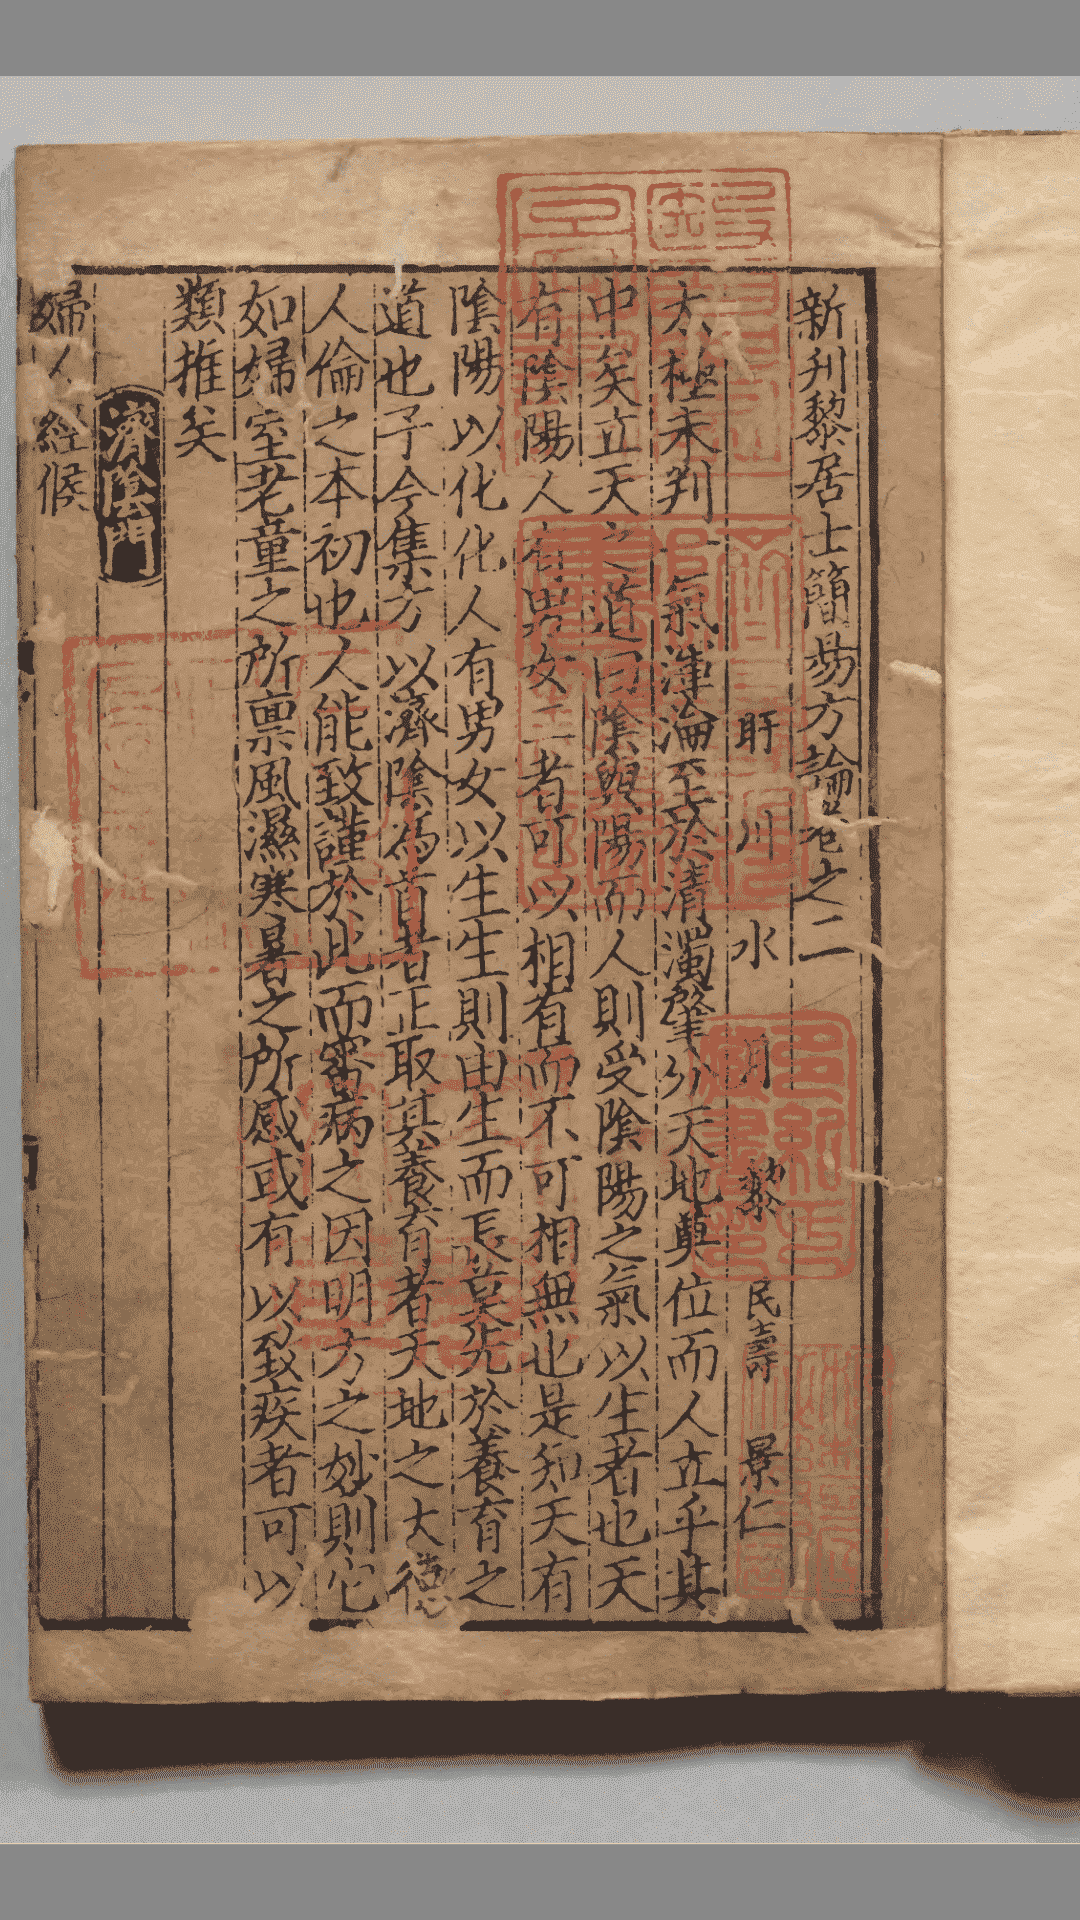 新刋黎居士簡易方論卷之二
盱川水月黎民壽景仁
太極未判一氣渾淪至於清濁肇分天地奠位而人立乎其
中矣立天之道曰陰與陽而人則受陰陽之氣以生者也天
有陰陽人有男女二者可以相有而不可相無也是知天有
陰陽以化化人有男女以生生生則由生而長莫先於養育之
道也予今集方以濟陰爲首者正取其養育者天地之大德
人倫之本初也人能致謹於此而審病之因明方之妙則它
如婦室老童之所禀風濕寒暑之所感或有以致疾者可以
類推矣
濟陰門
婦人經候